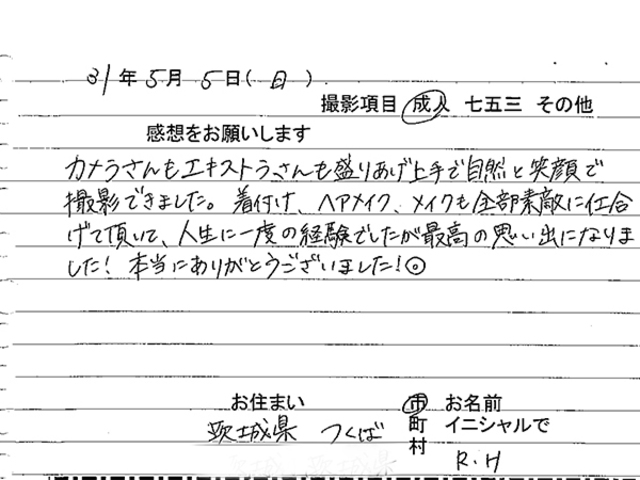 31年 5月 5日(日)
撮影項目 成人 七五三 その他
感想をお願いします
カメラさんもエキストラさんも盛りあげ上手で自然と笑顔で
撮影できました。着付け、ヘアメイク、メイクも全部素敵に仕合
げて頂いて、人生に一度の経験でしたが最高の思い出になりま
した! 本当にありがとうございました!◎
お住まい 市 お名前
茨城県 つくば 町 イニシャルで
村 R.H